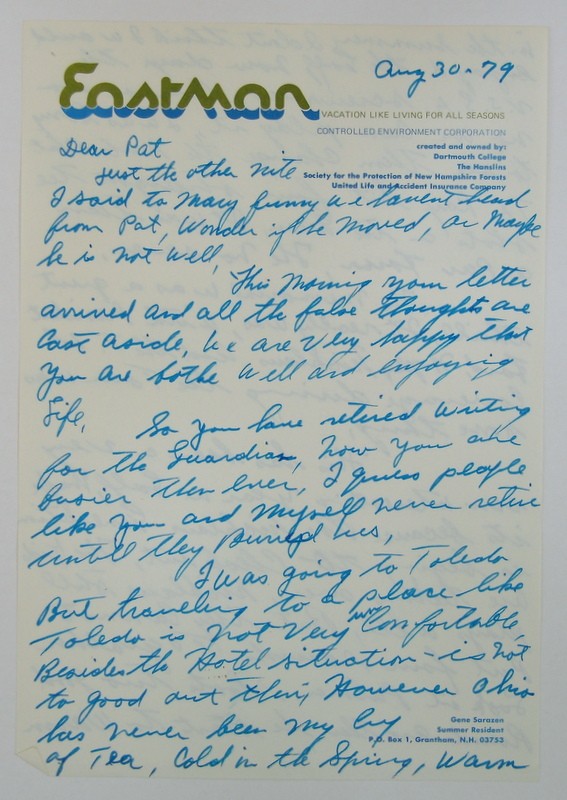 Aug 30-79
Eastman
VACATION LIKE LIVING FOR ALL SEASONS
CONTROLLED ENVIRONMENT CORPORATION
created and owned by:
Dartmouth College
The Hanslins
Society for the Protection of New Hampshire Forests
United Life and Accident Insurance Company
Dear Pat
Just the other nite
I said to Mary funny we havent head
from Pat, Wonder if he moved, or Maybe
he is not well,
This Morning your letter
arrived and all the false thoughts are
Cast aside, We are Very happy that
you are bothe well and enjoying
Life,
So you have retired writing
for the Guardian, now you are
busier then ever, I guess people
like you and Myself never retire
until they Buried us,
I was going to Toledo
But traveling to a place like
Toledo is not Very un Comfortable,
Besides th Hotel situation - is not
to good out their, However Ohio
has never been my Cup
of Tea, Cold in the Spring, Warm
Gene Sarazen
Summer Resident
P.O. Box 1, Grantham, N.H. 03753